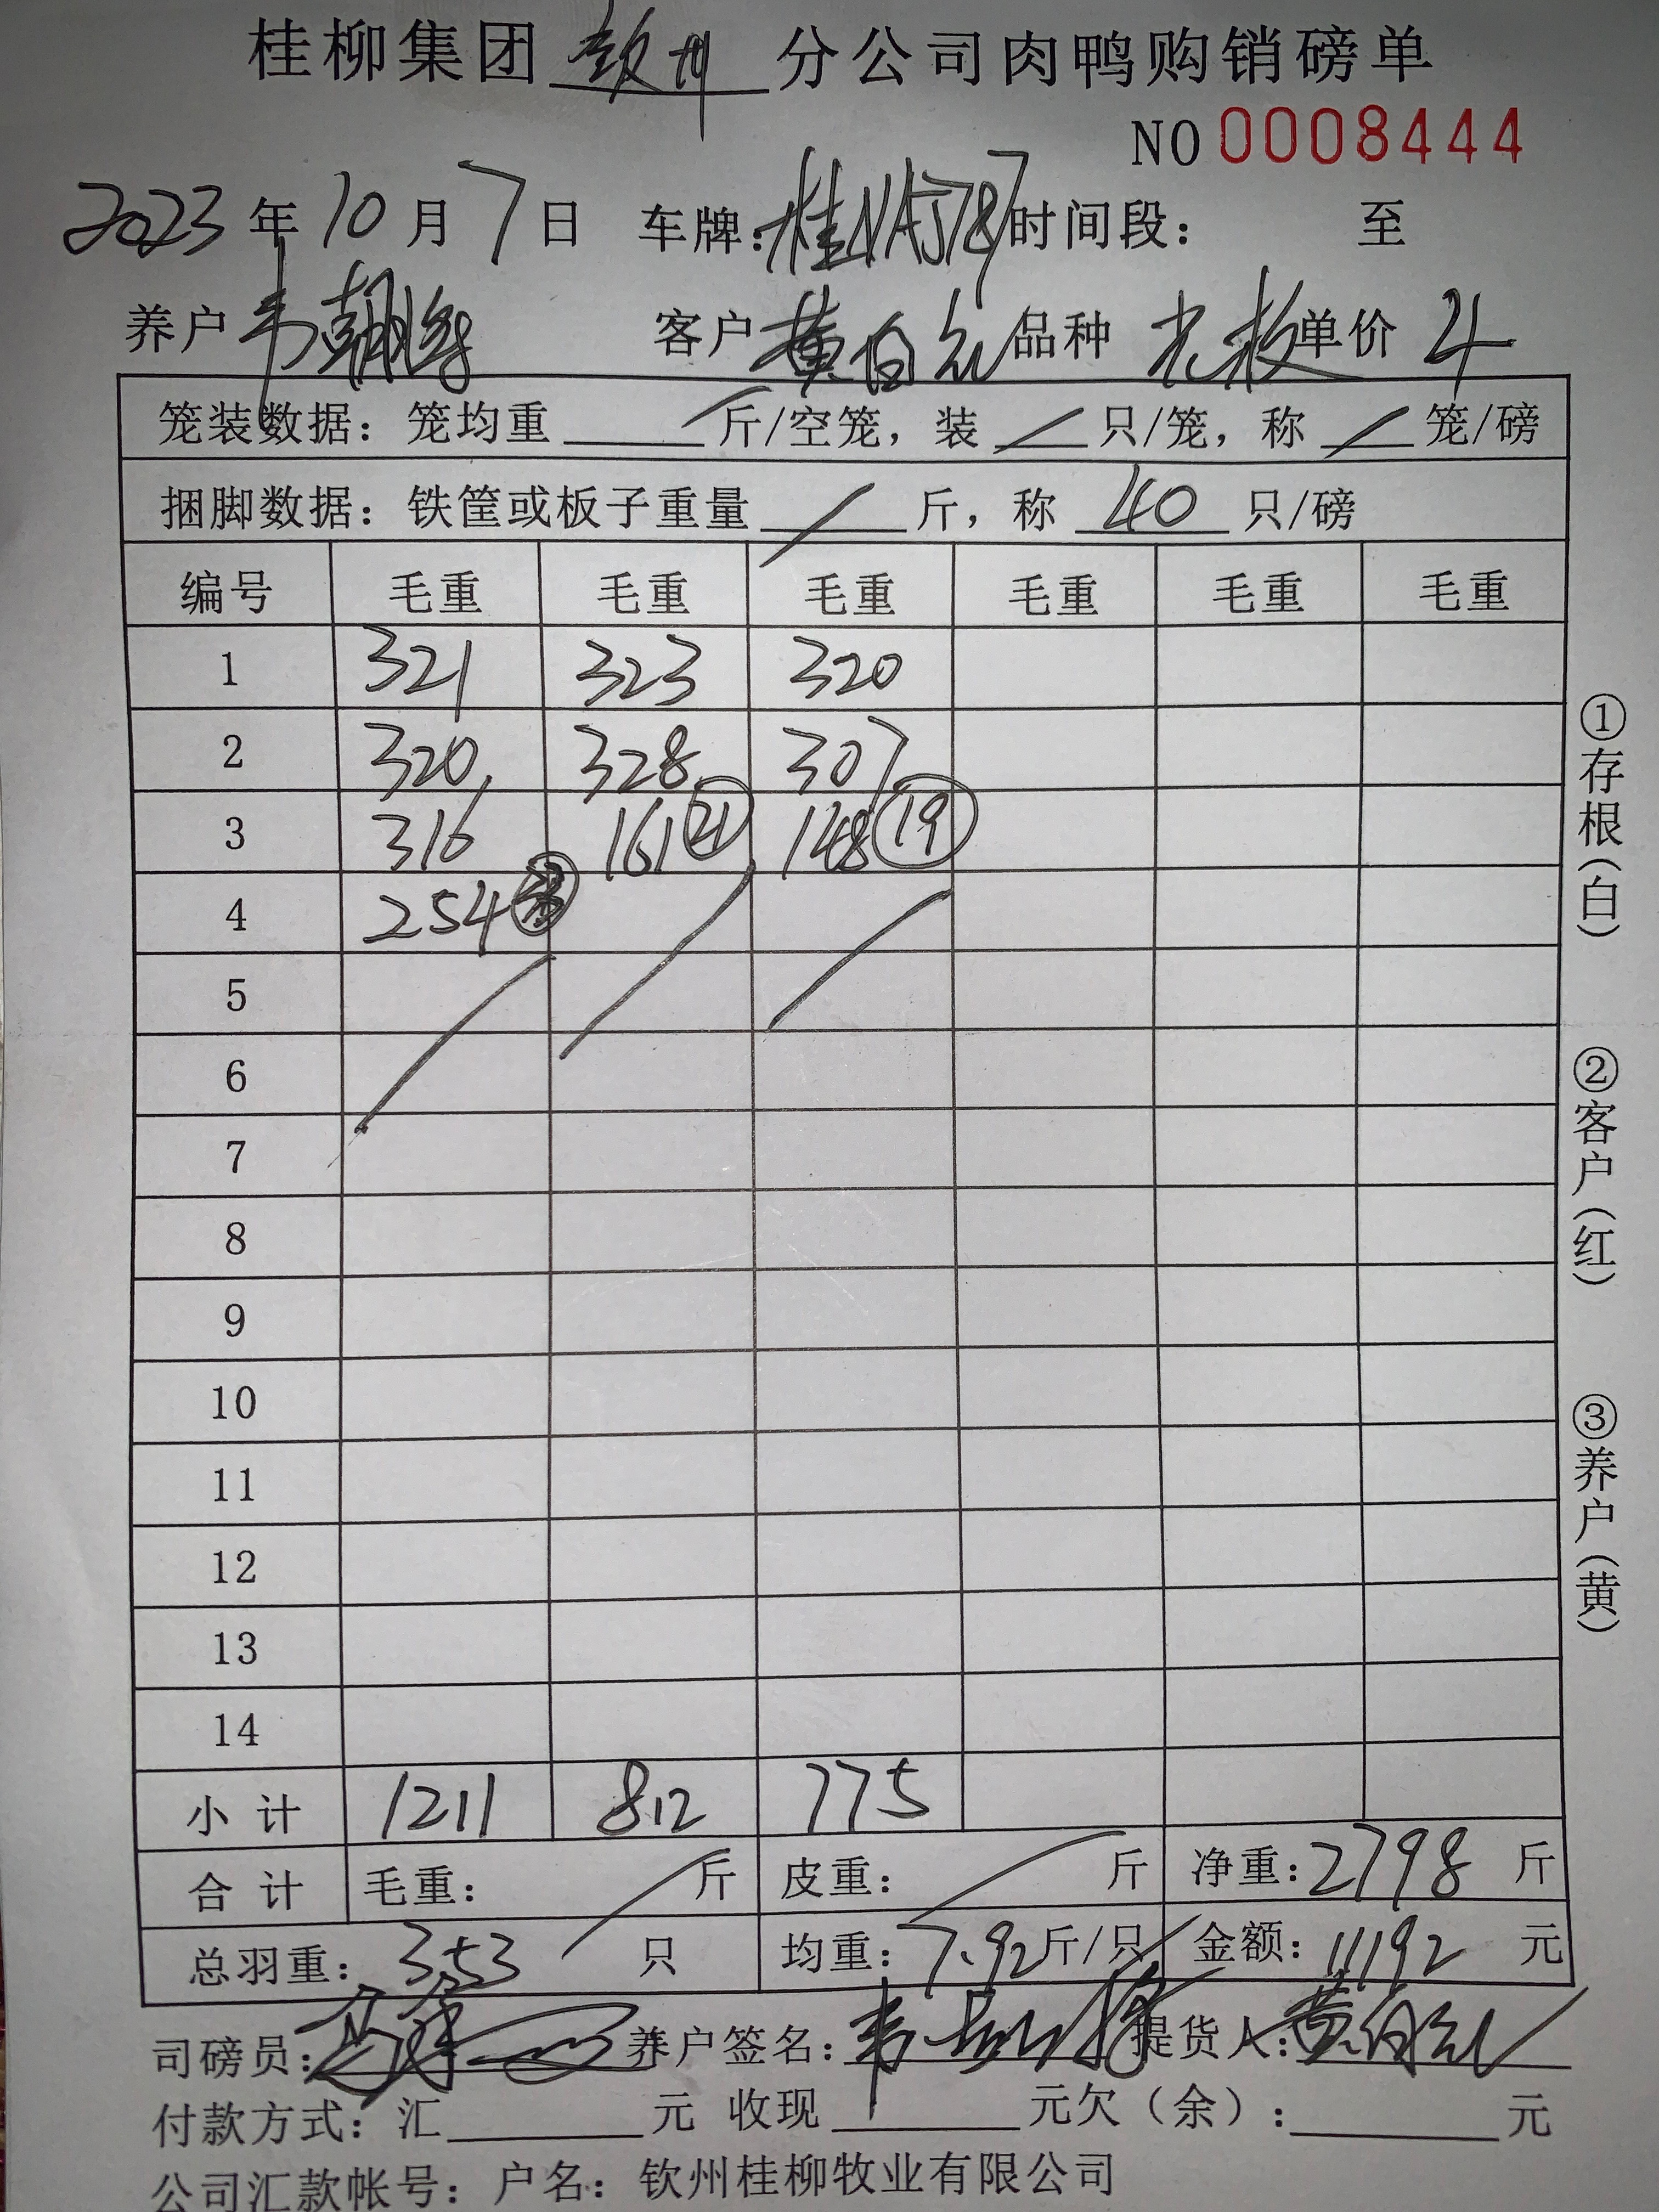 桂柳集团 钦州 分公司肉鸭购销磅单
NO 0008444
2023 年 10 月 7 日 车牌：桂NA5787 时间段： 至
养户 韦朝 客户 黄白允 品种 光板 单价 4
笼装数据：笼均重 / 斤/空笼，装 / 只/笼，称 / 笼/磅
捆脚数据：铁筐或板子重量 / 斤，称 40 只/磅
编号 毛重 毛重 毛重 毛重 毛重 毛重
1 321 323 320
2 320 328 307
3 316 161 ㉑ 148 ⑲
4 254
5
6
7
8
9
10
11
12
13
14
小 计 1211 812 775
合 计 毛重： / 斤 皮重： / 斤 净重：2798 斤
总羽重：353 只 均重：7.92 斤/只 金额：11192 元
司磅员： 养户签名：韦 提货人：黄白允
付款方式：汇 元 收现 元欠（余）： 元
公司汇款帐号：户名：钦州桂柳牧业有限公司
①存根（白）
②客户（红）
③养户（黄）